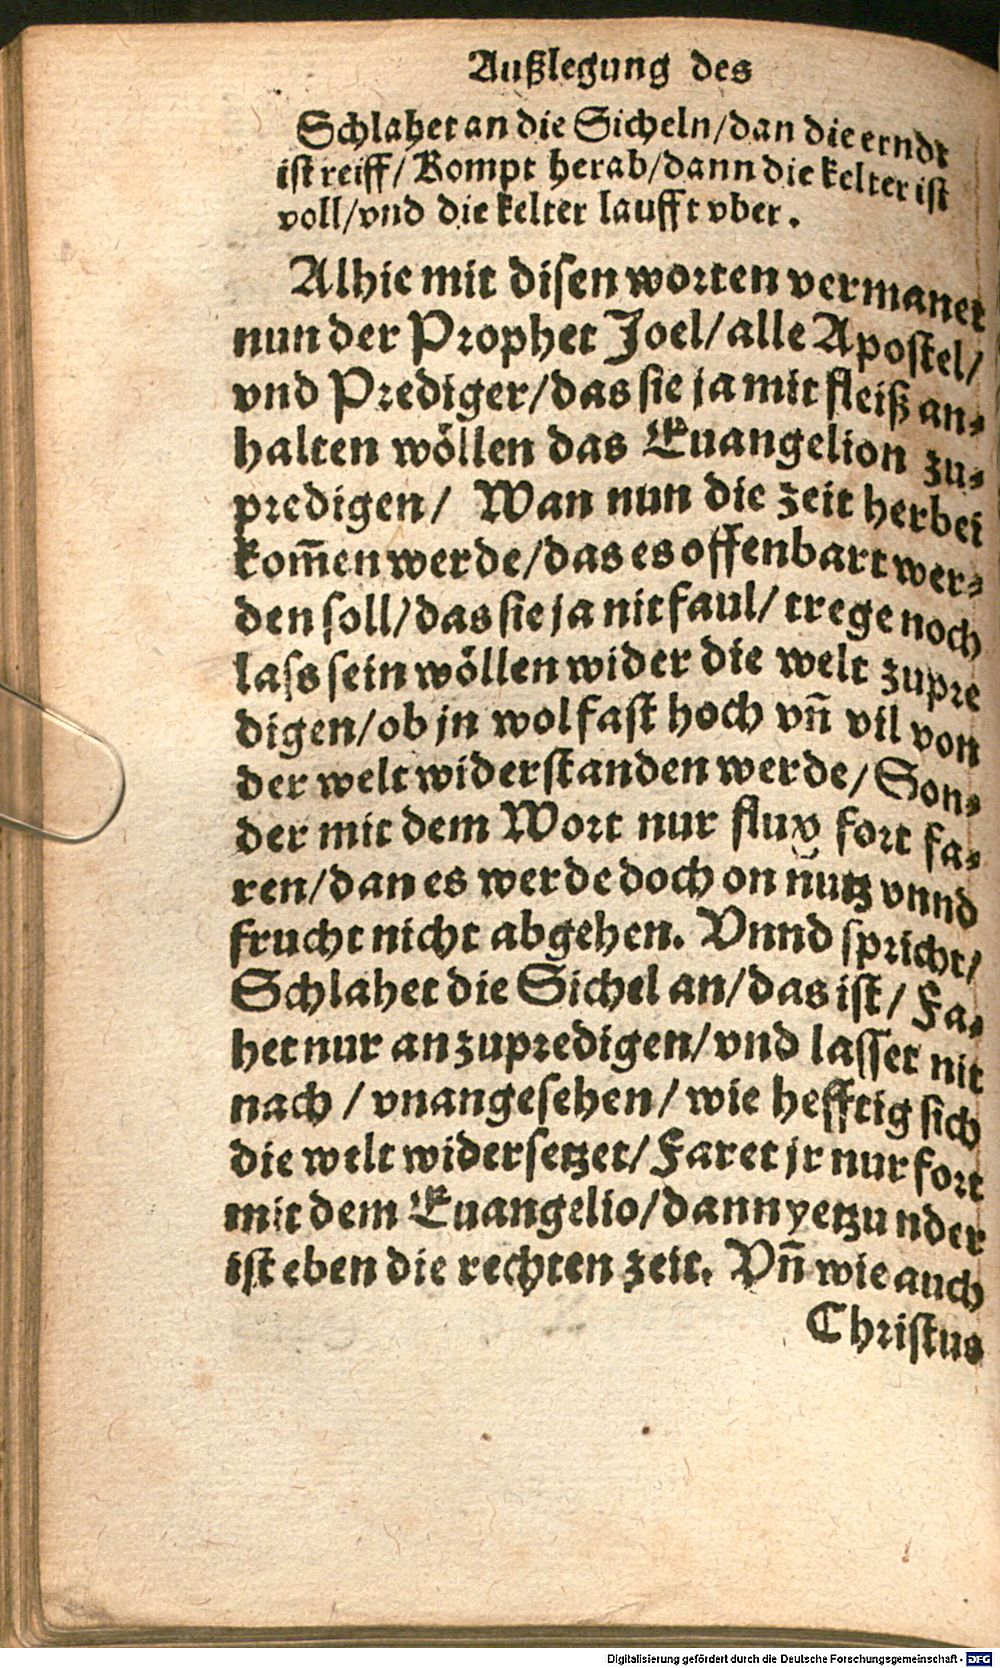 Außlegung des
Schlahet an die Sicheln/dan die erndt
ist reiff/Kompt herab/dann die kelter ist
voll/vnd die kelter laufft vber.
Alhie mit disen worten vermanet
nun der Prophet Joel/alle Apostel/
vnd Prediger/das sie ja mit fleiß an-
halten wöllen das Euangelion zu-
predigen/ Wan nun die zeit herbei
kom̄en werde/das es offenbart wer-
den soll/das sie ja nit faul/trege noch
lass sein wöllen wider die welt zupre
digen/ob jn wol fast hoch vn̄ vil von
der welt widerstanden werde/Son-
der mit dem Wort nur flux fort fa-
ren/dan es werde doch on nutz vnnd
frucht nicht abgehen. Vnnd spricht/
Schlahet die Sichel an/das ist/Fa-
het nur an zupredigen/vnd lasset nit
nach/vnangesehen/wie hefftig sich
die welt widersetzet/Faret jr nur fort
mit dem Euangelio/dann yetzunder
ist eben die rechten zeit. Vn̄ wie auch
Christus
Digitalisierung gefördert durch die Deutsche Forschungsgemeinschaft - DFG